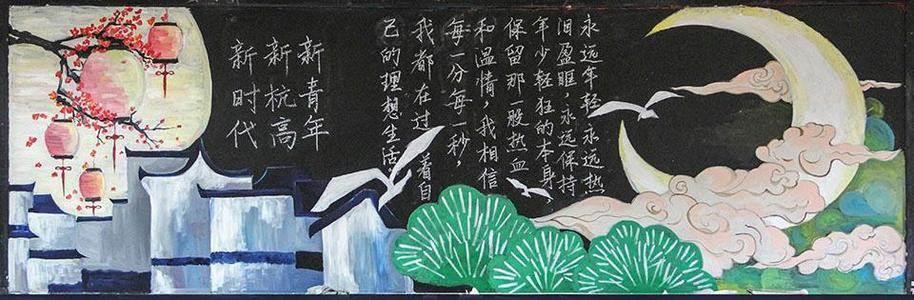 永远年轻,永远热
泪盈眶,永远保持
年少轻狂的本身
保留那一股热血
和温情,我相信
每一分每一秒,
我都在过着自
己的理想生活。
新青年
新杭高
新时代